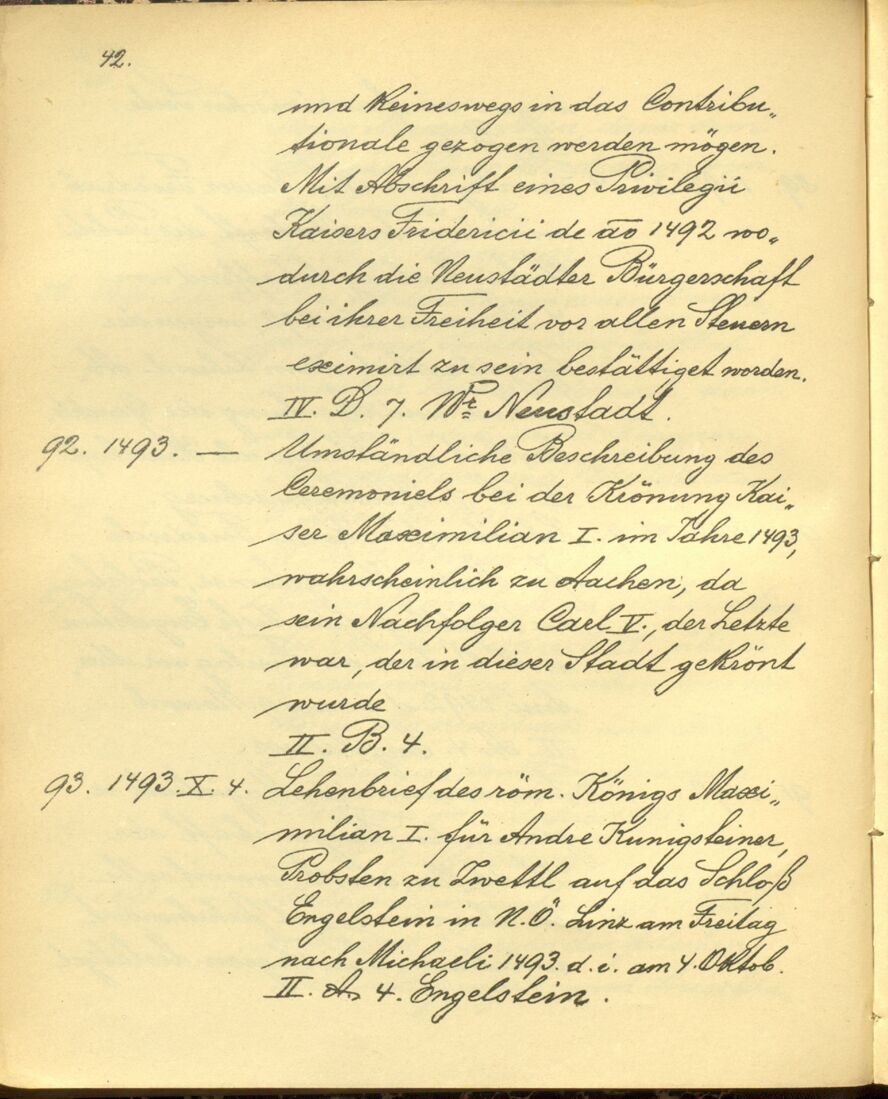 42.
und keineswegs in das Contribu„
tionale gezogen werden mögen.
Mit Abschrift eines Privilegii
Kaisers Fridericii de ao 1492 wo„
durch die Neustädter Bürgerschaft
bei ihrer Freiheit vor allen Steuern
eximirt zu sein bestättiget worden.
IV. D. 7. Wr Neustadt.
92. 1493. — Umständliche Beschreibung des
Ceremoniels bei der Krönung Kai„
ser Maximilian I. im Jahre 1493,
wahrscheinlich zu Aachen, da
sein Nachfolger Carl V., der Letzte
war, der in dieser Stadt gekrönt
wurde
II. B. 4.
93. 1493. X. 4. Lehenbrief des röm. Königs Maxi„
milian I. für Andre Kunigsteiner,
Probsten zu Zwettl auf das Schloß
Engelstein in N.Ö. Linz am Freitag
nach Michaeli 1493. d. i. am 4. Oktob.
II. A. 4. Engelstein.